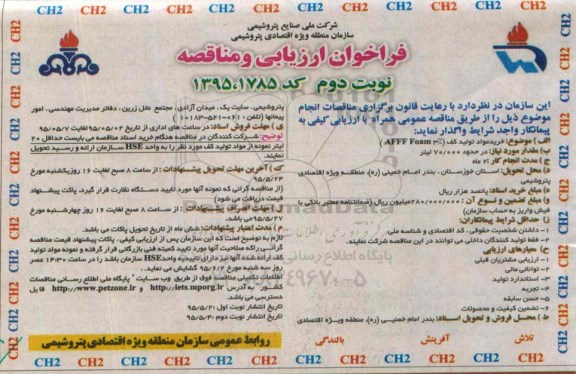 شرکت ملی صنایع پتروشیمی
سازمان منطقه ویژه اقتصادی پتروشیمی
فراخوان ارزیابی ومناقصه
نوبت دوم کد ۱۳۹۵،۱۷۸۵
این سازمان در نظردارد با رعایت قانون برگزاری مناقصات انجام
موضوع ذیل را از طریق مناقصه عمومی همراه با ارزیابی کیفی به
پیمانکار واجد شرایط واگذار نماید:
الف) موضوع: خریدمواد تولید کف (AFFF Foam ۳٪)
ب) مقدار مورد نیاز: در حدود ۷۰/۰۰۰ لیتر
ج) مدت انجام کار: ۴ ماه
د) محل تحویل: استان خوزستان، بندر امام خمینی (ره)، منطقه ویژه اقتصادی
پتروشیمی
ه) مبلغ خرید اسناد: پانصد هزار ریال
و) مبلغ تضمین و نوع آن: ۲۸۰/۰۰۰/۰۰۰میلیون ریال (ضمانتنامه معتبر بانکی یا
فیش واریز به حساب سازمان)
ز) حداقل شرایط پیمانکاران:
۱- داشتن شخصیت حقوقی، کد اقتصادی و شناسه ملی
۲- فقط تولید کنندگان داخلی می توانند در این مناقصه شرکت نمایند.
ح) معیارهای ارزیابی:
۱- ارزیابی مشتریان قبلی
۲- توانائی مالی
۳- استاندارد تولید
۴- تجربه
۵- حسن سابقه
۶- تضمین کیفیت و محصولات
ط) محل فروش و تحویل اسناد: بندر امام خمینی (ره)، منطقه ویژه اقتصادی
پتروشیمی، سایت یک، میدان آزادی، مجتمع نخل زرین، دفاتر مدیریت مهندسی، امور
پیمانها (تلفن
ی) مهلت فروش اسناد: در ساعت های اداری از تاریخ ۹۵/۰۵/۰۲ لغایت ۹۵/۰۵/۰۷
توضیح: شرکت کنندگان در مناقصه هنگام خرید اسناد مناقصه می بایست حداقل ۲۰
لیتر نمونه از مواد تولید کف مورد نظر را به واحد HSE سازمان ارائه و رسید تحویل
نمایند.
ک) آخرین مهلت تحویل پیشنهادات: از ساعت ۸ صبح لغایت ۱۶ روزیکشنبه مورخ
۹۵/۵/۲۴
(از مناقصه گرانی که نمونه آنها مورد تایید دستگاه نظارت قرار گیرد، پاکت پیشنهاد
قیمت دریافت می شود)
ل) مهلت انصراف پیشنهادات: از ساعت ۸ صبح لغایت ۱۶ روز چهارشنبه مورخ
۹۵/۵/۲۷ می باشد.
م) مدت اعتبار پیشنهادات: شش ماه از تاریخ تحویل پاکات می باشد.
لازم به توضیح است که این سازمان پس از ارزیابی کیفی، پاکات پیشنهاد قیمت مناقصه
گرانی راکه صلاحیت آنها مورد تایید کمیته فنی بازرگانی قرار گرفته و نمونه مواد تولید
کف ارائه شده آنها نیز دارای تاییدیه واحد HSE سازمان باشد را در ساعت ۱۴:۳۰ عصر
روز سه شنبه مورخ ۹۵/۶/۲ گشایش می نماید.
اطلاعات تکمیلی مناقصه فوق از طریق وب سایت " پایگاه ملی اطلاع رسانی مناقصات
کشور" به آدرس http://iets.mporg.ir و http://www.petzone.ir قابل
دسترسی می باشد.
تاریخ انتشار نوبت اول: ۹۵/۵/۲
تاریخ انتشار نوبت دوم:
روابط عمومی سازمان منطقه ویژه اقتصادی پتروشیمی
تلاش آفرینش بالندگی
CH2 CH2 CH2 CH2 CH2 CH2 CH2 CH2